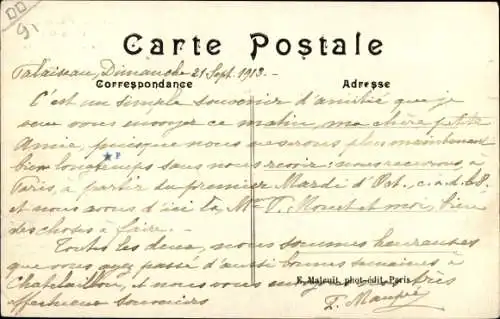 91
Carte Postale
Palaiseau, Dimanche 21 Sept. 1913.-
Correspondance Adresse
C'est un simple souvenir d'amitié que je
veux vous envoyer ce matin, ma chère petite
Amie, puisque nous ne serons plus maintenant
bien longtemps sans nous revoir: nous
Paris, à partir du premier Mardi d'Oct., c.à.d. le 8.
et nous avons d'ici là, Me et moi, bien
des choses à faire.-
Toutes les deux, nous sommes heureuses
que vous ayez passé d'aussi bonnes semaines à
E. Malcuit, phot-édit. Paris
Chatelaillon, et nous vous très
affectueux souvenirs